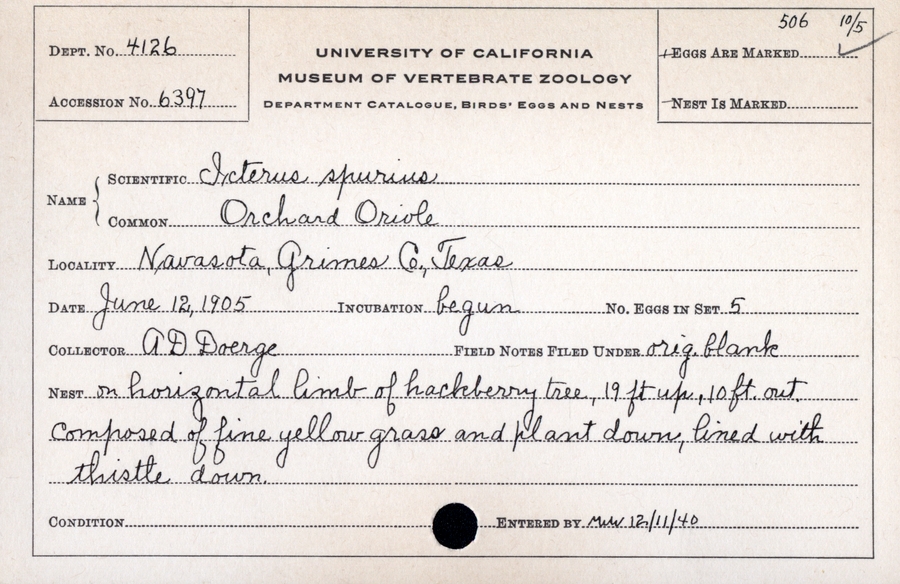 506 10/5
DEPT. No. 4126
UNIVERSITY OF CALIFORNIA
EGGS ARE MARKED
MUSEUM OF VERTEBRATE ZOOLOGY
ACCESSION No. 6397
DEPARTMENT CATALOGUE, BIRDS' EGGS AND NESTS
NEST IS MARKED
NAME { SCIENTIFIC Icterus spurius
COMMON Orchard Oriole
LOCALITY Navasota, Grimes Co., Texas
DATE June 12, 1905 INCUBATION begun No. EGGS IN SET 5
COLLECTOR A D Doerge FIELD NOTES FILED UNDER orig. blank
NEST on horizontal limb of hackberry tree, 19 ft up, 10 ft. out.
Composed of fine yellow grass and plant down, lined with
thistle down.
CONDITION ENTERED BY MWW 12/11/40